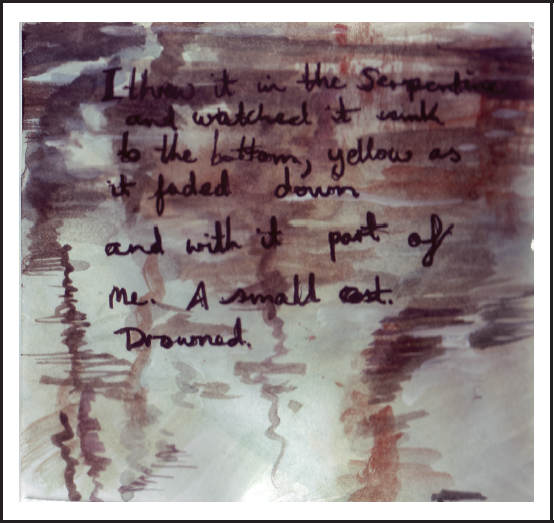 I threw it in the Serpentine
and watched it sink
to the bottom, yellow as
it faded down
and with it part of
me. A small cost.
Drowned.